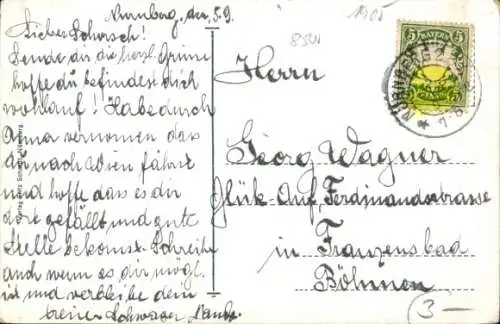 Nürnberg, den 5.9.
1905
Lieber Schorsch!
Sende dir die herzl. Grüsse
hoffe du befindest dich
wohlauf! Habe durch
Anna vernommen das
du nach Wien fährst
und hoffe dass es dir
dort gefällt und gute
Stelle bekomst. Schreibe
auch wenn es dir mögl.
ist und verbleibe dein
Schwager
Herrn
Georg Wagner
Glück Auf, Ferdinandstrasse
in Franzensbad
Böhmen
3-
5 BAYERN 5
NÜRNBERG